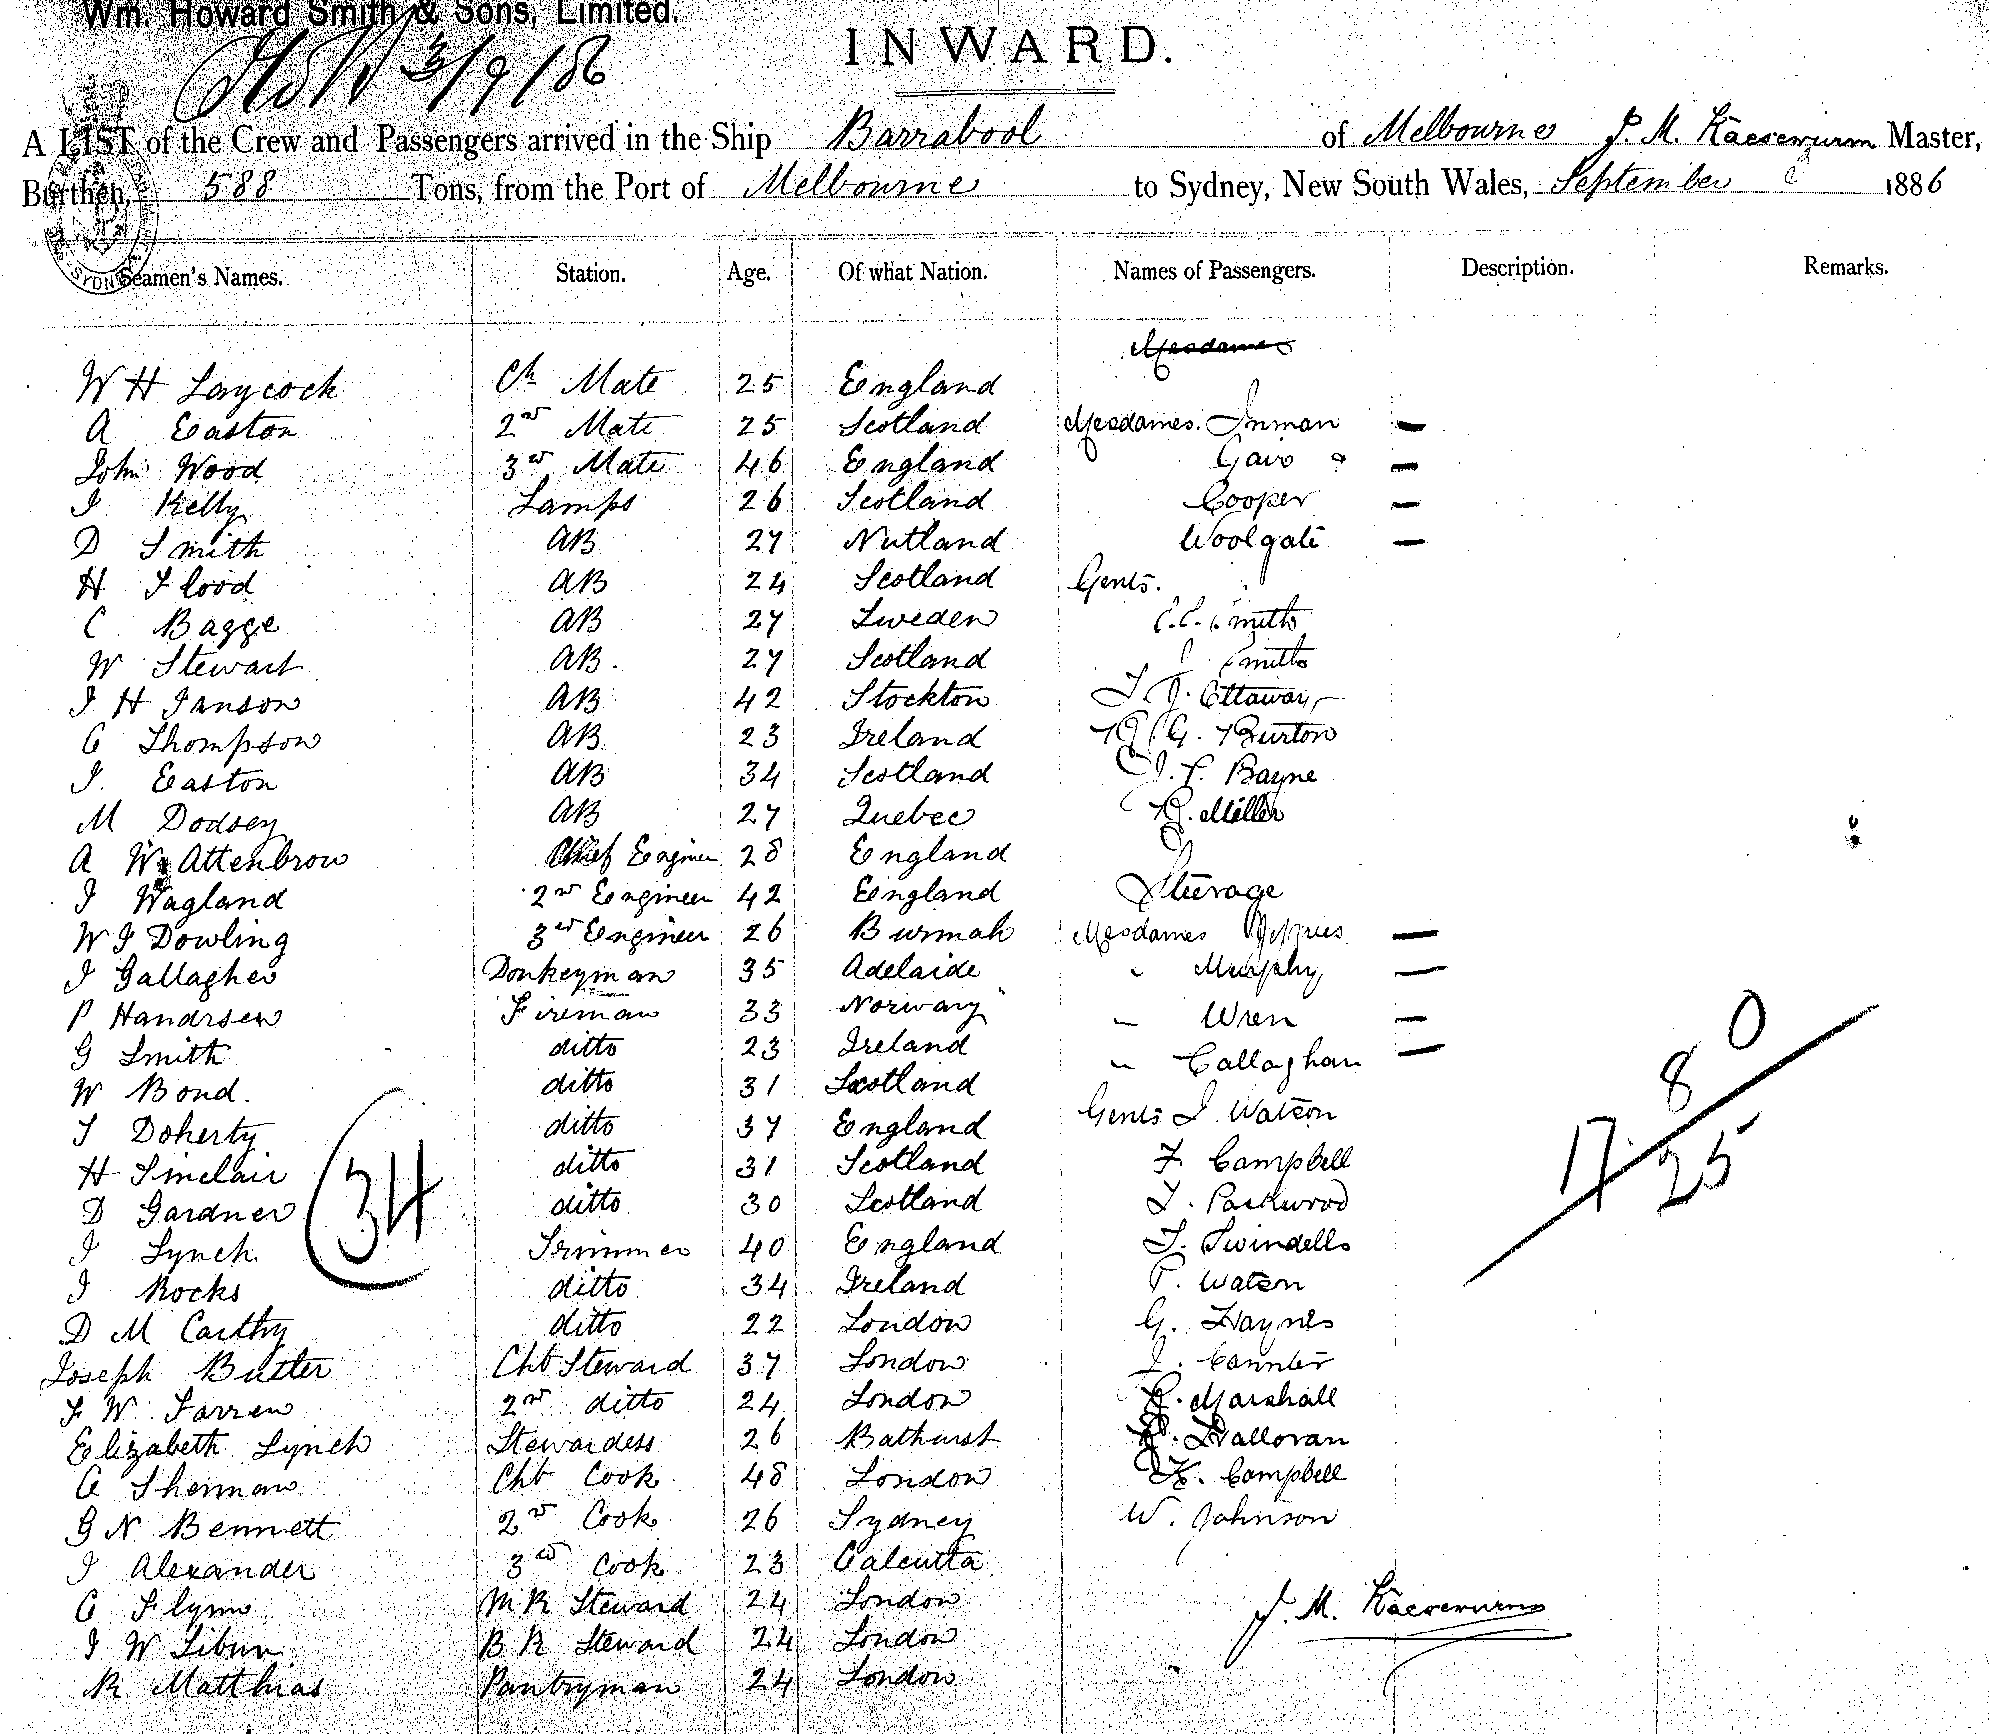 Wm. Howard Smith & Sons, Limited.
3/9/86
INWARD.
A LIST of the Crew and Passengers arrived in the Ship Barrabool of Melbourne J. M. Kaeserwurm Master,
Burthen, 588 Tons, from the Port of Melbourne to Sydney, New South Wales, September 1886
Seamen's Names. Station. Age. Of what Nation. Names of Passengers. Description. Remarks.
Mesdames
W H Laycock Ch Mate 25 England
A Easton 2nd Mate 25 Scotland Mesdames. Inman —
John Wood 3rd Mate 46 England —
J Kelly Lamps 26 Scotland Cooper —
D Smith AB 27 Nutland Woolgate —
H Flood AB 24 Scotland Gents.
C Bagge AB 27 Sweden C.C. Smith
W Stewart AB. 27 Scotland J Smith
J H Janson AB 42 Stockton T. J. Ottaway
C Thompson AB 23 Ireland G. Burton
J. Easton AB 34 Scotland Bayne
M Dodsey AB 27 Quebec R. Miller
A W Attenbrow Chief Engineer 28 England
J Wagland 2nd Engineer 42 England Steerage
W J Dowling 3rd Engineer 26 Burmah Mesdames —
J Gallagher Donkeyman 35 Adelaide " Murphy —
P Handrsen Fireman 33 Norway " Wren —
G Smith ditto 23 Ireland " Callaghan —
W Bond. ditto 31 Scotland
T Doherty ditto 37 England Gents J. Watson
H Sinclair ditto 31 Scotland F. Campbell
D Gardner ditto 30 Scotland T. Packwood
J Lynch Trimmer 40 England T. Swindells
J Rocks ditto 34 Ireland P. Watson
D M Carthy ditto 22 London G. Haynes
Joseph Butler Cht Steward 37 London J.
F W Farren 2nd ditto 24 London R. Marshall
Elizabeth Lynch Stewardess 26 Bathurst Halloran
C Sherman Cht Cook 48 London K. Campbell
G N Bennett 2nd Cook 26 Sydney W. Johnson
J Alexander 3rd Cook 23 Calcutta
C Flynn M R Steward 24 London J. M. Kaeserwurm
J W Sibun B R Steward 24 London
R Matthias Pantryman 24 London
34
17 8 0
25